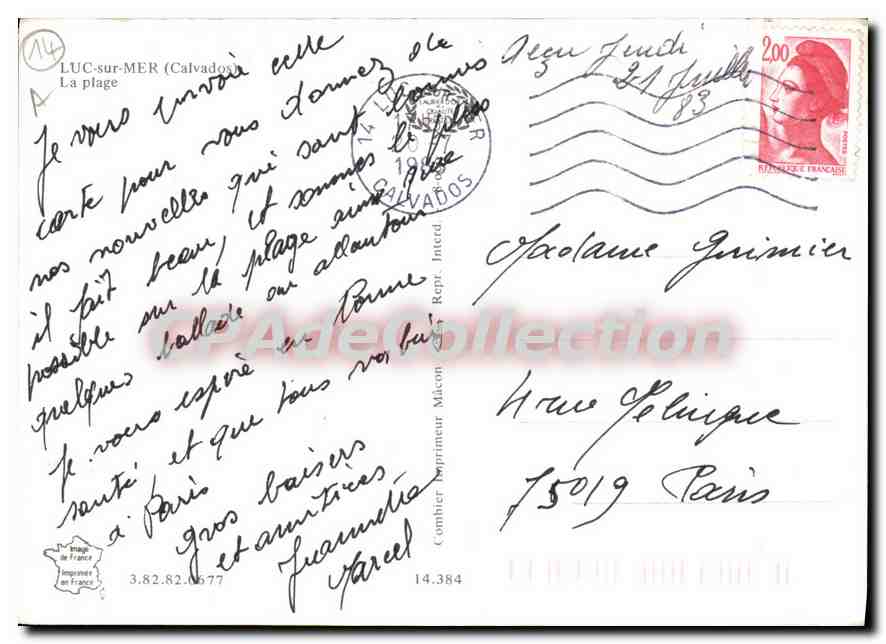 14
A
LUC-sur-MER (Calvados)
La plage
Je vous envoie cette
carte pour vous donnez de
nos nouvelles qui sont bonnes
il fait beau, et sommes le plus
possible sur la plage sinon
quelques ballade au allentour
Je vous espère en bonne
santé, et que tous va bien
a Paris
gros baisers
et amitiées
Jeannette
Marcel
Image
de France
Imprimé
en France
3.82.82.0677
14.384
Combier Imprimeur Mâcon
Repr. Interd.
14 L R
CALVADOS
Jeudi
21 Juillet
83
2,00
POSTES
REPUBLIQUE FRANÇAISE
Madame Guimier
4 rue
75019 Paris
CPAdeCollection